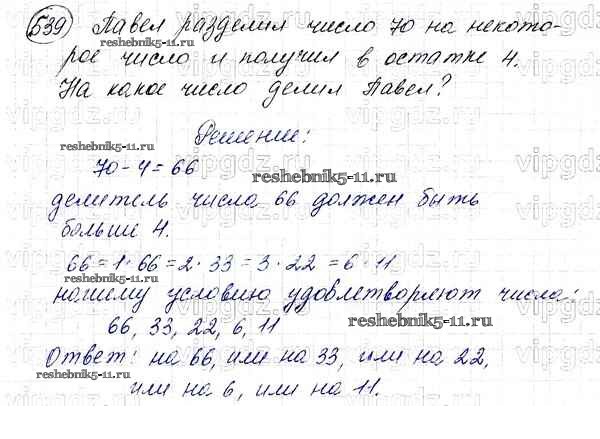 539) Павел разделил число 70 на некото-
рое число и получил в остатке 4.
На какое число делил Павел?
Решение:
reshebnik5-11.ru
70-4=66
reshebnik5-11.ru
делитель числа 66 должен быть
больше 4.
66=1·66=2·33=3·22=6·11
reshebnik5-11.ru
нашему условию удовлетворяют числа:
66, 33, 22, 6, 11
reshebnik5-11.ru
Ответ: на 66, или на 33, или на 22,
reshebnik5-11.ru
или на 6, или на 11.